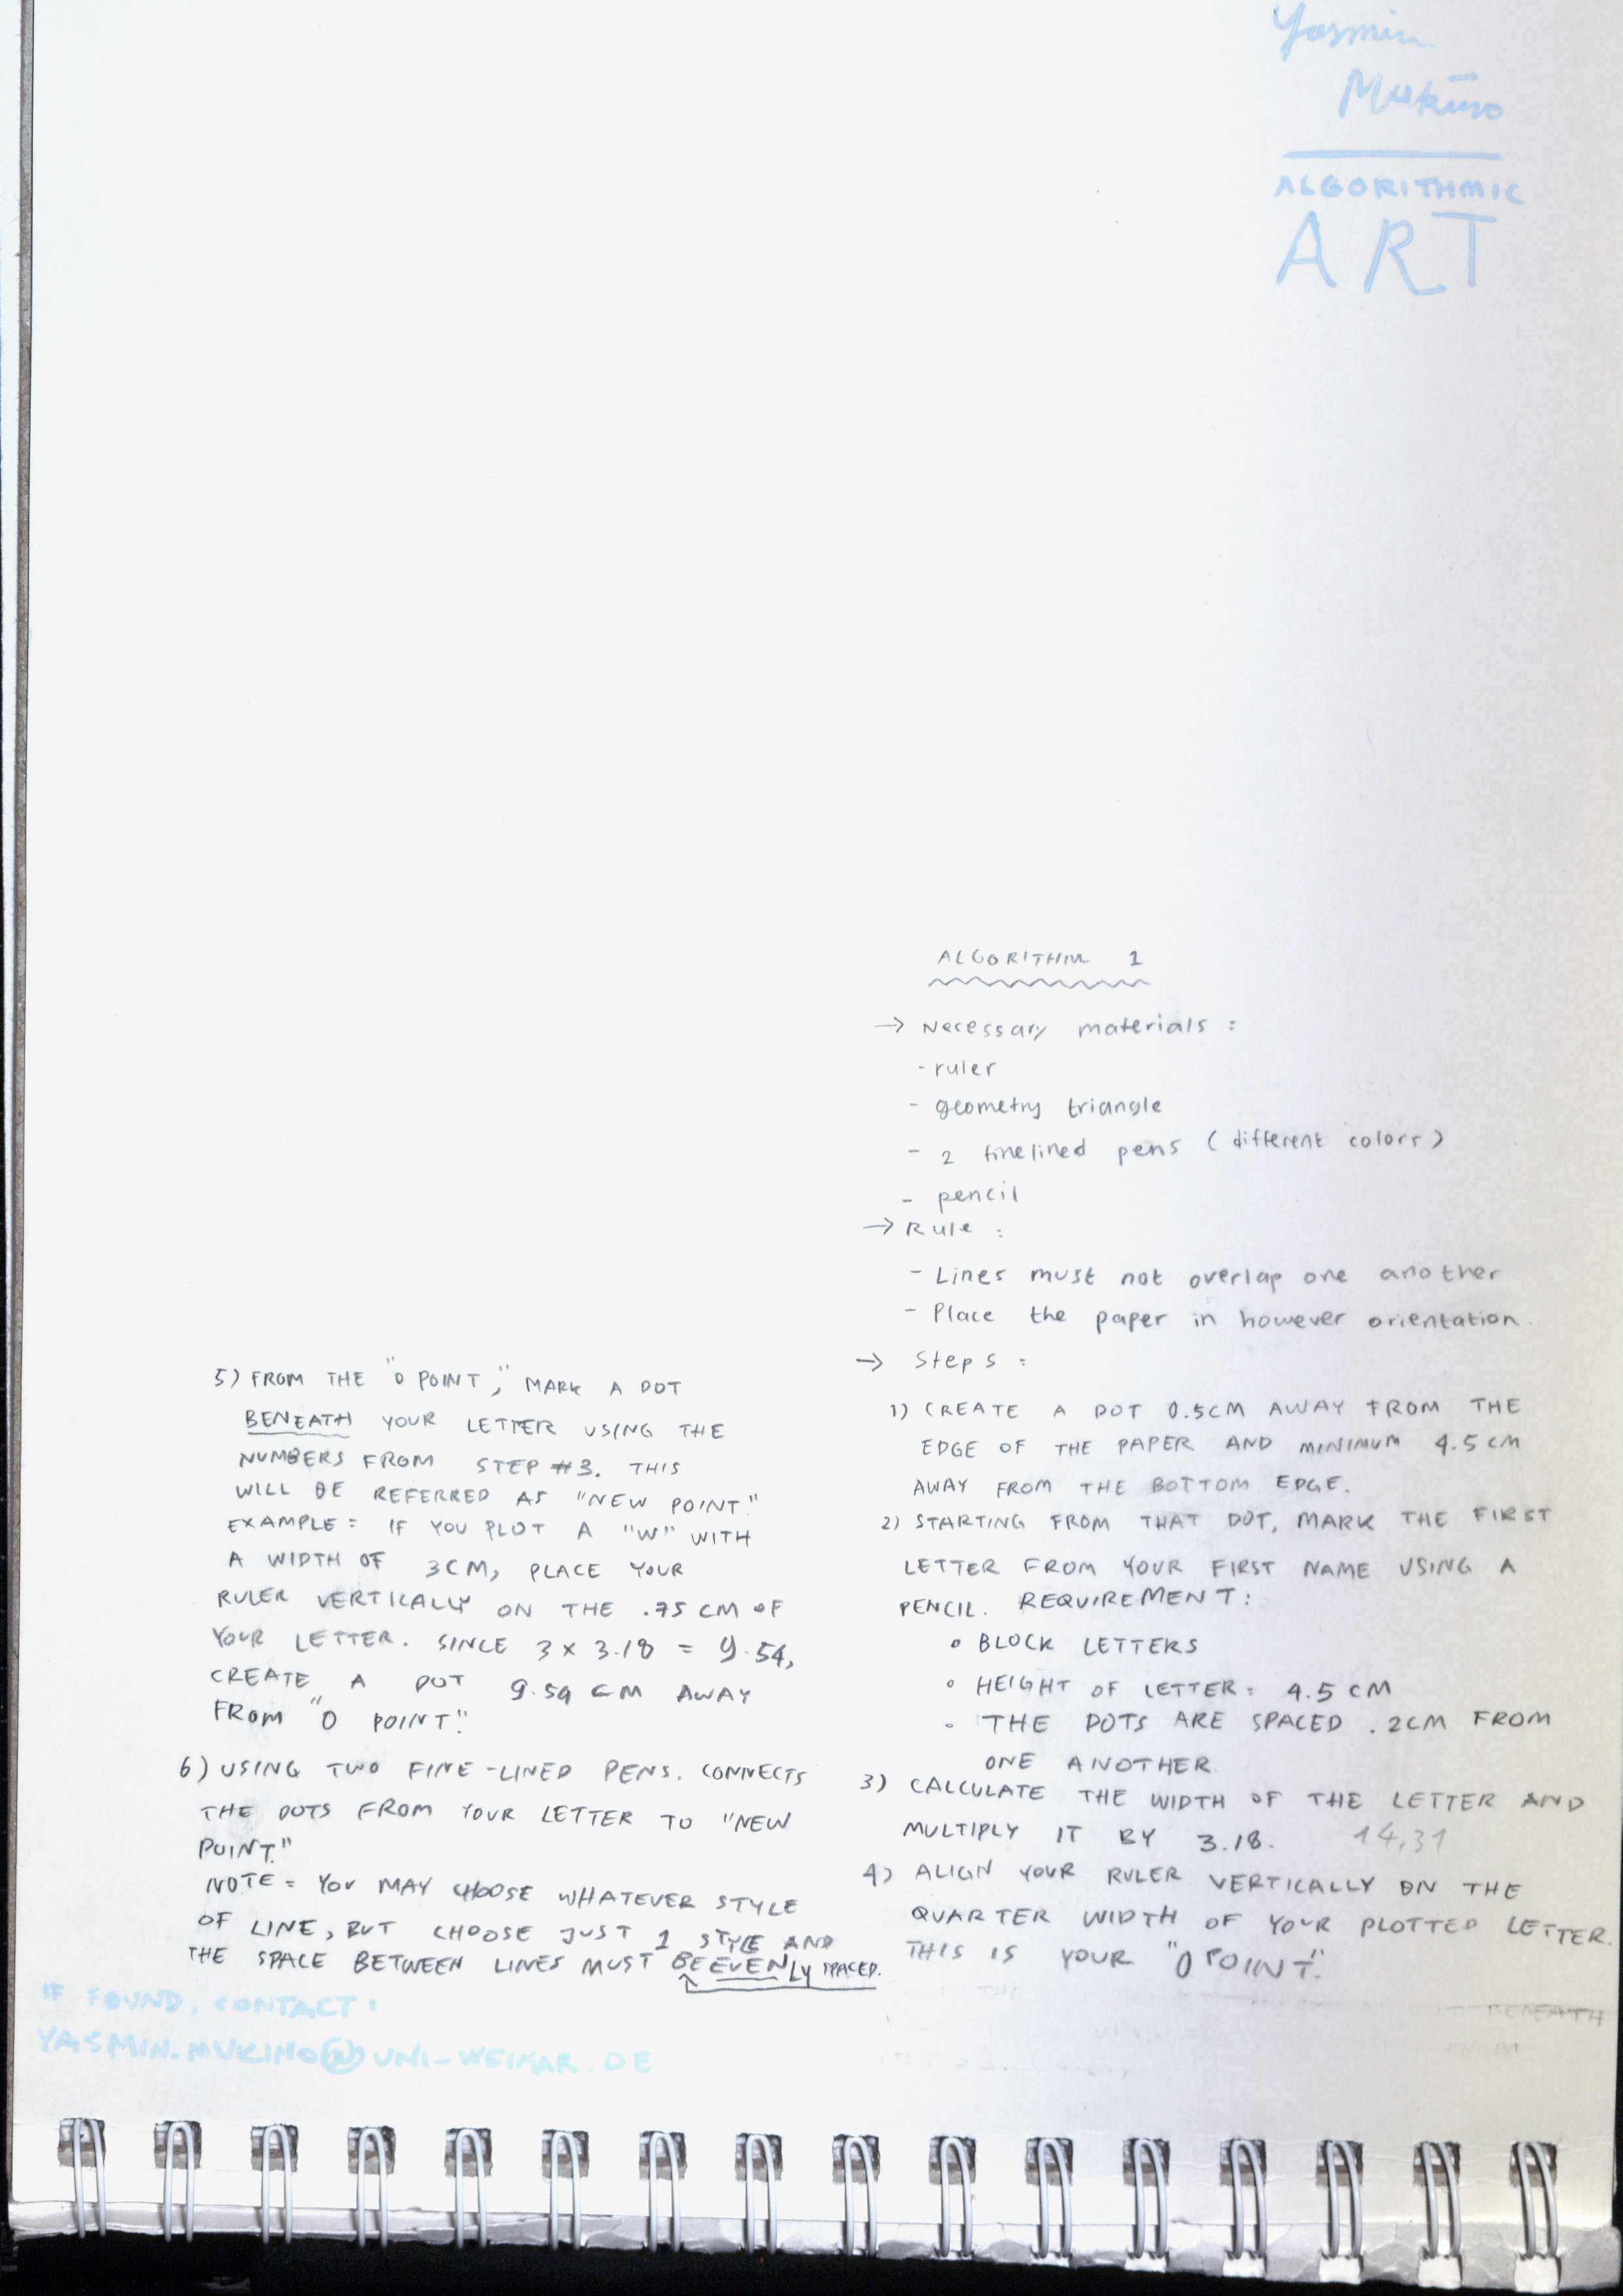 Yasmin
Mukino
ALGORITHMIC
ART
ALGORITHM 1
→ Necessary materials :
- ruler
- geometry triangle
- 2 finelined pens (different colors)
- pencil
→ Rule :
- Lines must not overlap one another
- Place the paper in however orientation.
→ Steps :
1) CREATE A DOT 0.5CM AWAY FROM THE
EDGE OF THE PAPER AND MINIMUM 4.5CM
AWAY FROM THE BOTTOM EDGE.
2) STARTING FROM THAT DOT, MARK THE FIRST
LETTER FROM YOUR FIRST NAME USING A
PENCIL. REQUIREMENT:
• BLOCK LETTERS
• HEIGHT OF LETTER: 4.5 CM
• THE DOTS ARE SPACED .2CM FROM
ONE ANOTHER.
3) CALCULATE THE WIDTH OF THE LETTER AND
MULTIPLY IT BY 3.18. 14,31
4) ALIGN YOUR RULER VERTICALLY ON THE
QUARTER WIDTH OF YOUR PLOTTED LETTER.
THIS IS YOUR "0 POINT."
BENEATH
5) FROM THE "0 POINT," MARK A DOT
BENEATH YOUR LETTER USING THE
NUMBERS FROM STEP #3. THIS
WILL BE REFERRED AS "NEW POINT."
EXAMPLE: IF YOU PLOT A "W" WITH
A WIDTH OF 3CM, PLACE YOUR
RULER VERTICALLY ON THE .75 CM OF
YOUR LETTER. SINCE 3 x 3.18 = 9.54,
CREATE A DOT 9.54 CM AWAY
FROM "0 POINT."
6) USING TWO FINE-LINED PENS. CONNECTS
THE DOTS FROM YOUR LETTER TO "NEW
POINT."
NOTE: YOU MAY CHOOSE WHATEVER STYLE
OF LINE, BUT CHOOSE JUST 1 STYLE AND
THE SPACE BETWEEN LINES MUST BE EVENLY SPACED.
IF FOUND, CONTACT:
YASMIN.MUKINO@UNI-WEIMAR.DE